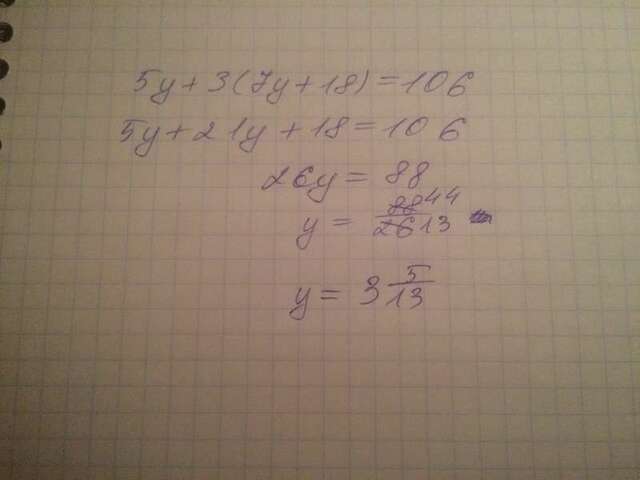 5y + 3(7y + 18) = 106
5y + 21y + 18 = 106
26y = 88
y = 88 44 / 26 13
y = 3 5/13